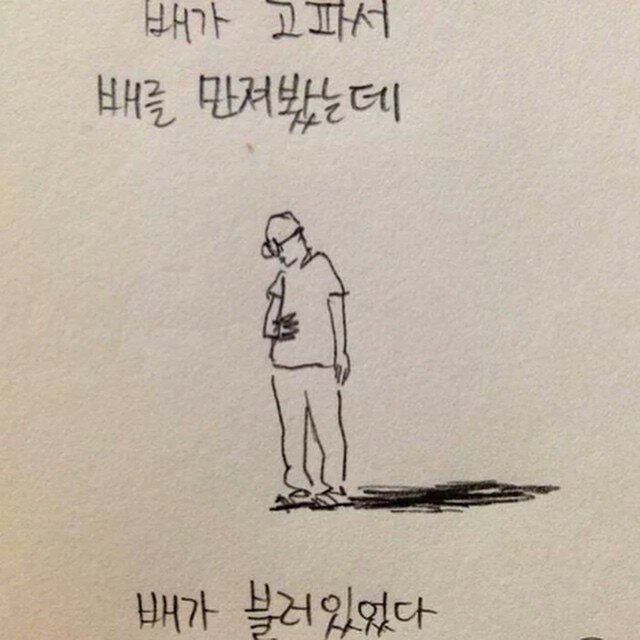 배가 고파서
배를 만져봤는데
배가 불러있었다